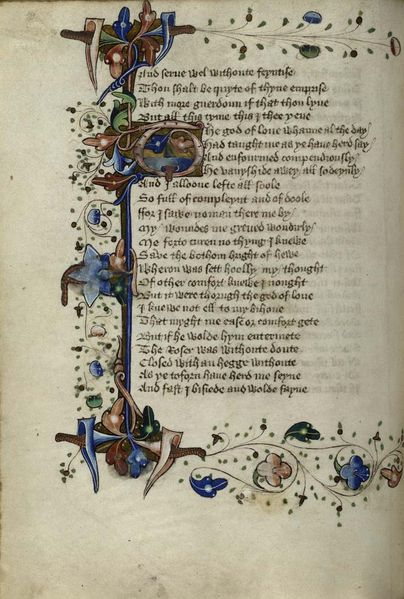 And serve wel withoute feyntise
Thou shalt be quyte of thyne emprise
With more guerdoun if that thou lyve
But all this tyme this I thee yeve
The god of love whanne al the day
Had taught me as ye have herd say
And enfourmed compendously
He vanyshide awey all sodeynly
And I alloone lefte all soole
So full of compleynt and of doole
ffor I sawe no man there me by
My woundes me greved wondirly
Me forto curen no thyng I knewe
Save the bothom bright of hewe
Wheron was sett hoolly my thought
Of other comfort knewe I nought
But it were thorugh the god of love
I knewe not ell to my bihove
That myght me ease or comfort gete
But if he wolde hym entermete
The Roser was withoute doute
Closed with an hegge withoute
As ye toforn have herd me seyne
And fast I bisiede and wolde fayne